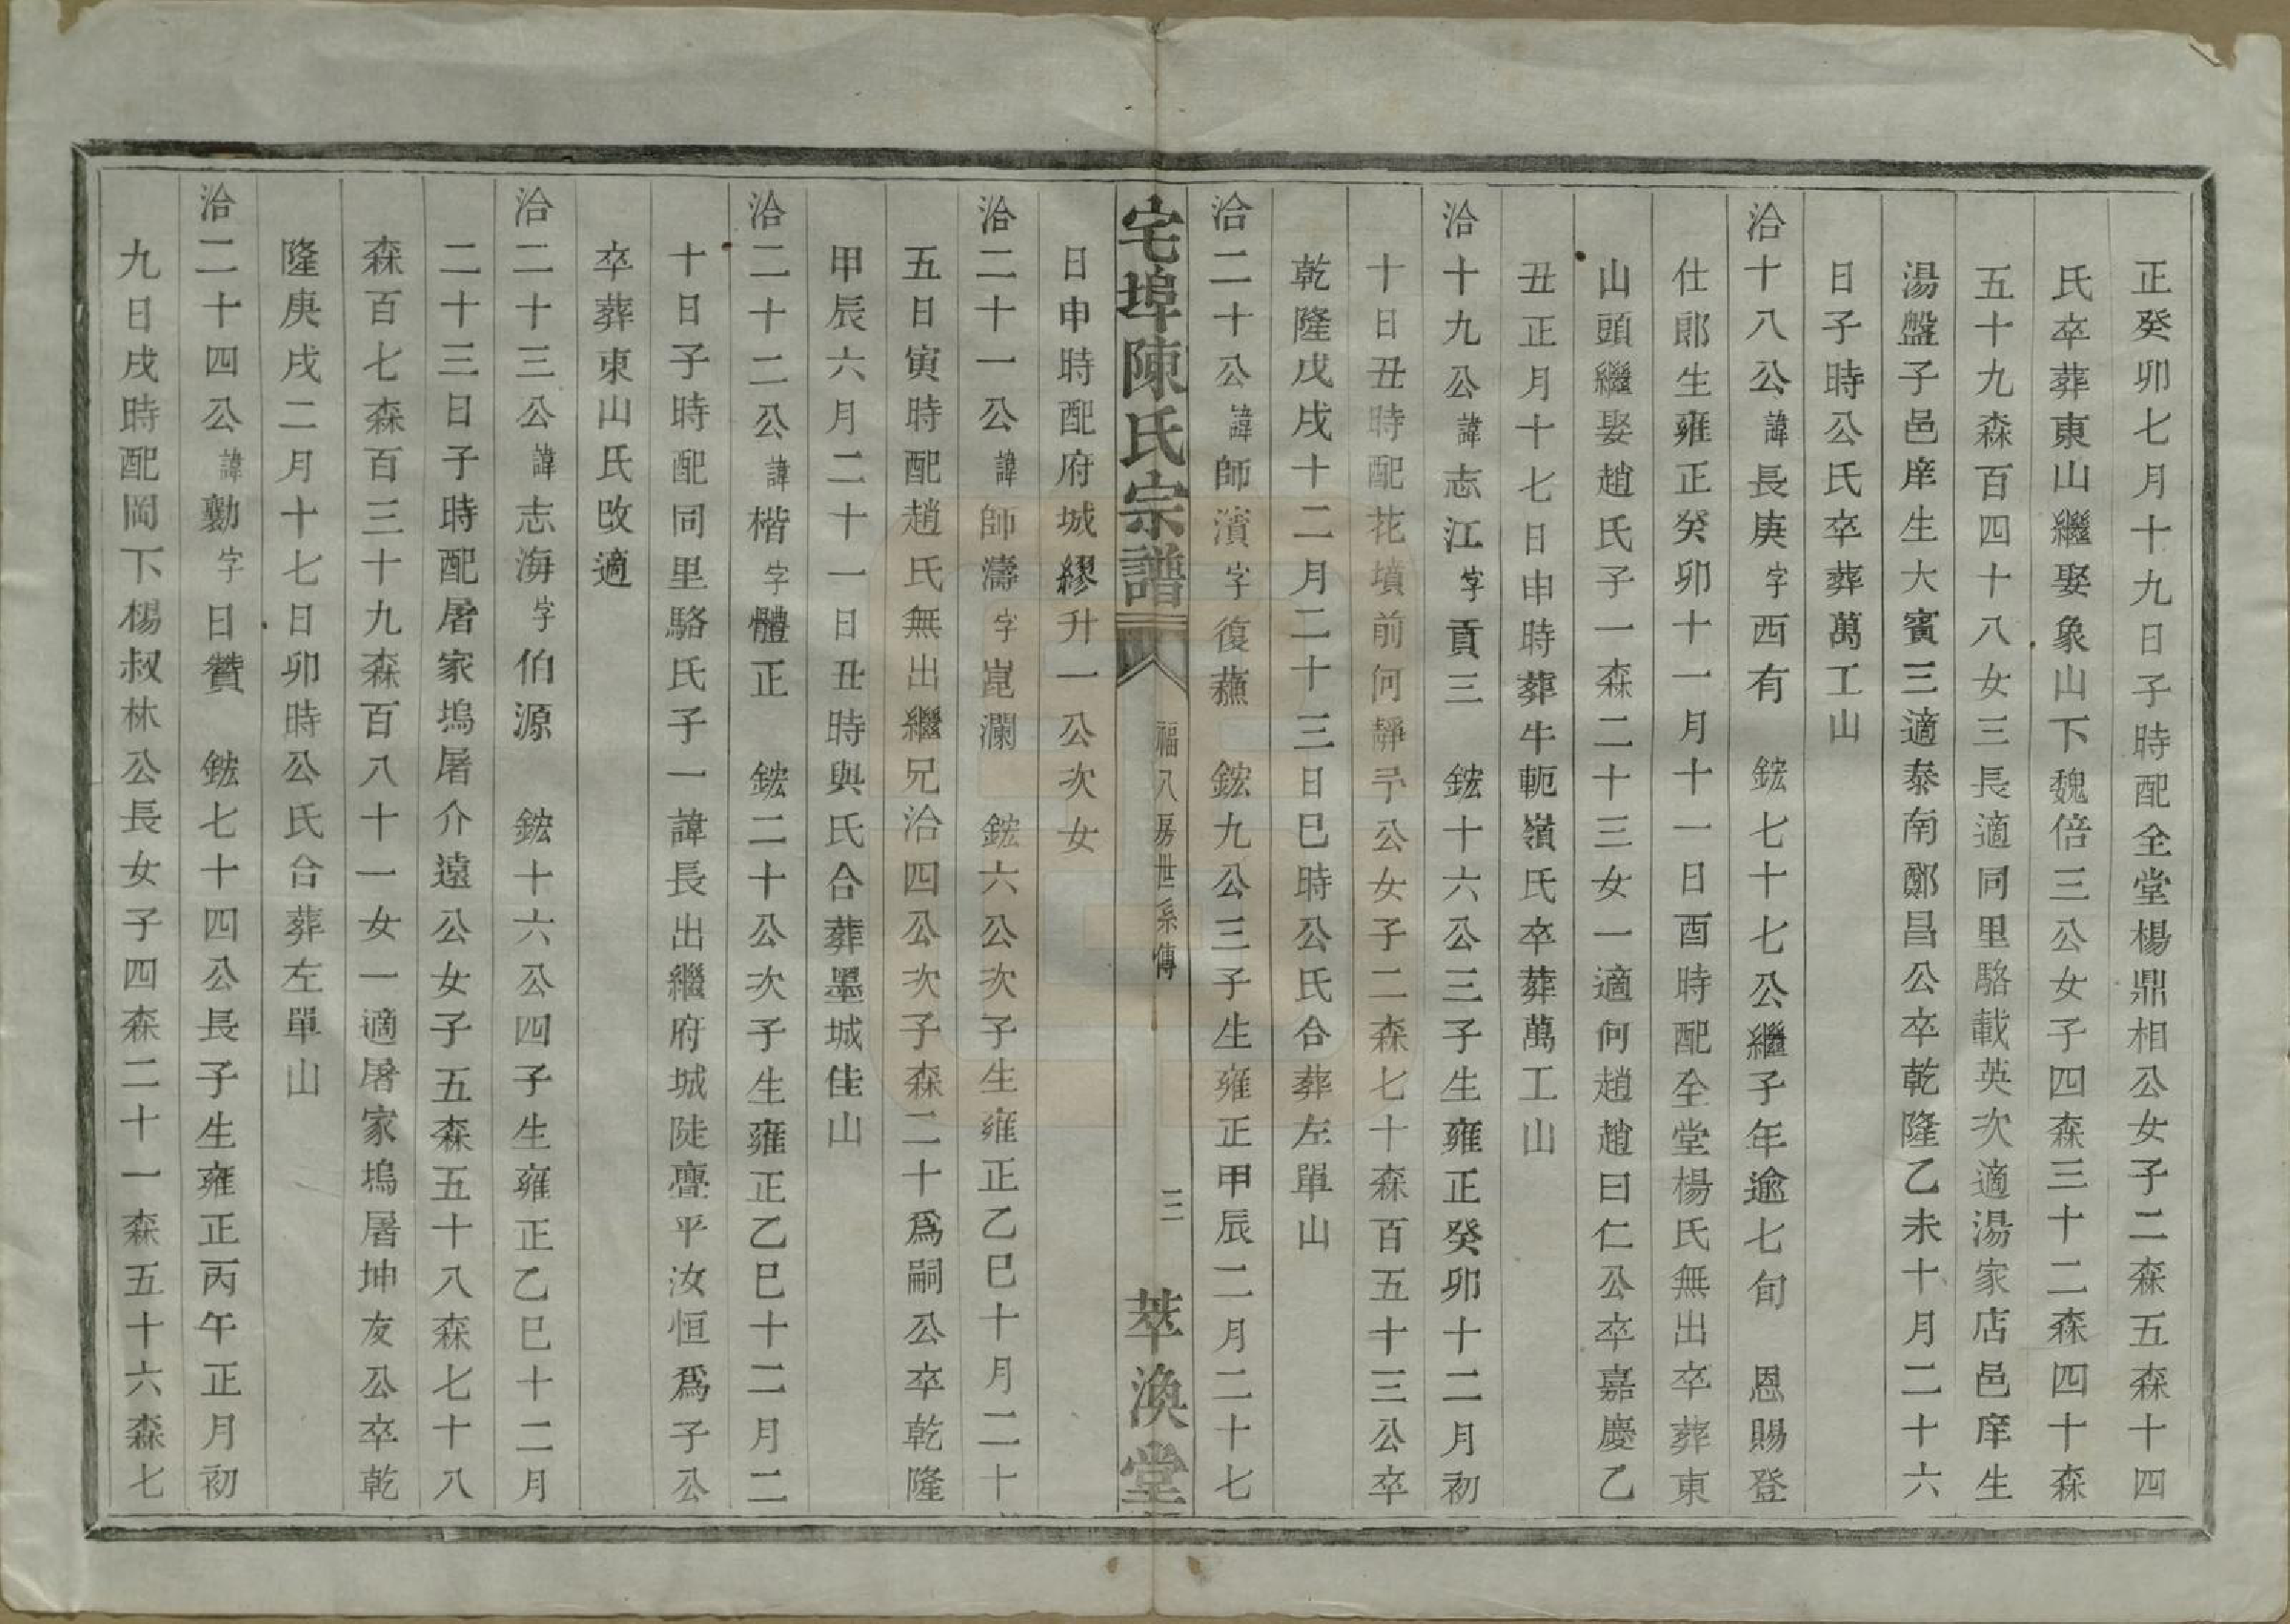 正癸卯七月十九日子時配全堂楊鼎相公女子二森五森十四
氏卒葬東山繼娶象山下魏倍三公女子四森三十二森四十森
五十九森百四十八女三長適同里駱載英次適湯家店邑庠生
湯盤子邑庠生大賓三適泰南鄭昌公卒乾隆乙未十月二十六
日子時公氏卒葬萬工山
洽十八公諱長庚字西有　鋐七十七公繼子年逾七旬　恩賜登
仕郎生雍正癸卯十一月十一日酉時配全堂楊氏無出卒葬東
山頭繼娶趙氏子一森二十三女一適何趙趙曰仁公卒嘉慶乙
丑正月十七日申時葬牛軛嶺氏卒葬萬工山
洽十九公諱志江字貢三　鋐十六公三子生雍正癸卯十二月初
十日丑時配花墳前何靜予公女子二森七十森百五十三公卒
乾隆戊戌十二月二十三日巳時公氏合葬左單山
洽二十公諱師濱字復蘓　鋐九公三子生雍正甲辰二月二十七
日申時配府城繆升一公次女
宅埠陳氏宗譜
福八房世系傳
三
萃渙堂
洽二十一公諱師濤字崑瀾　鋐六公次子生雍正乙巳十月二十
五日寅時配趙氏無出繼兄洽四公次子森二十爲嗣公卒乾隆
甲辰六月二十一日丑時與氏合葬墨城佳山
洽二十二公諱楷字體正　鋐二十公次子生雍正乙巳十二月二
十日子時配同里駱氏子一諱長出繼府城陡亹平汝恒爲子公
卒葬東山氏改適
洽二十三公諱志海字伯源　鋐十六公四子生雍正乙巳十二月
二十三日子時配屠家塢屠介遠公女子五森五十八森七十八
森百七森百三十九森百八十一女一適屠家塢屠坤友公卒乾
隆庚戌二月十七日卯時公氏合葬左單山
洽二十四公諱勷字日贊　鋐七十四公長子生雍正丙午正月初
九日戌時配岡下楊叔林公長女子四森二十一森五十六森七